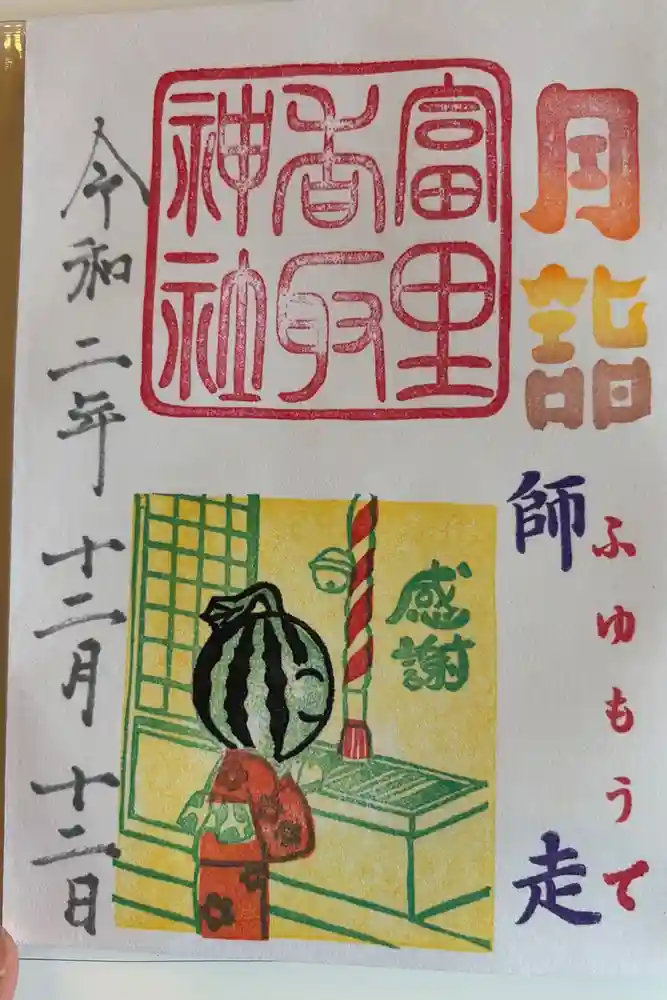 月詣
ふゆもうで
師走
富里
香取
神社
感謝
令和二年 十二月 十二日